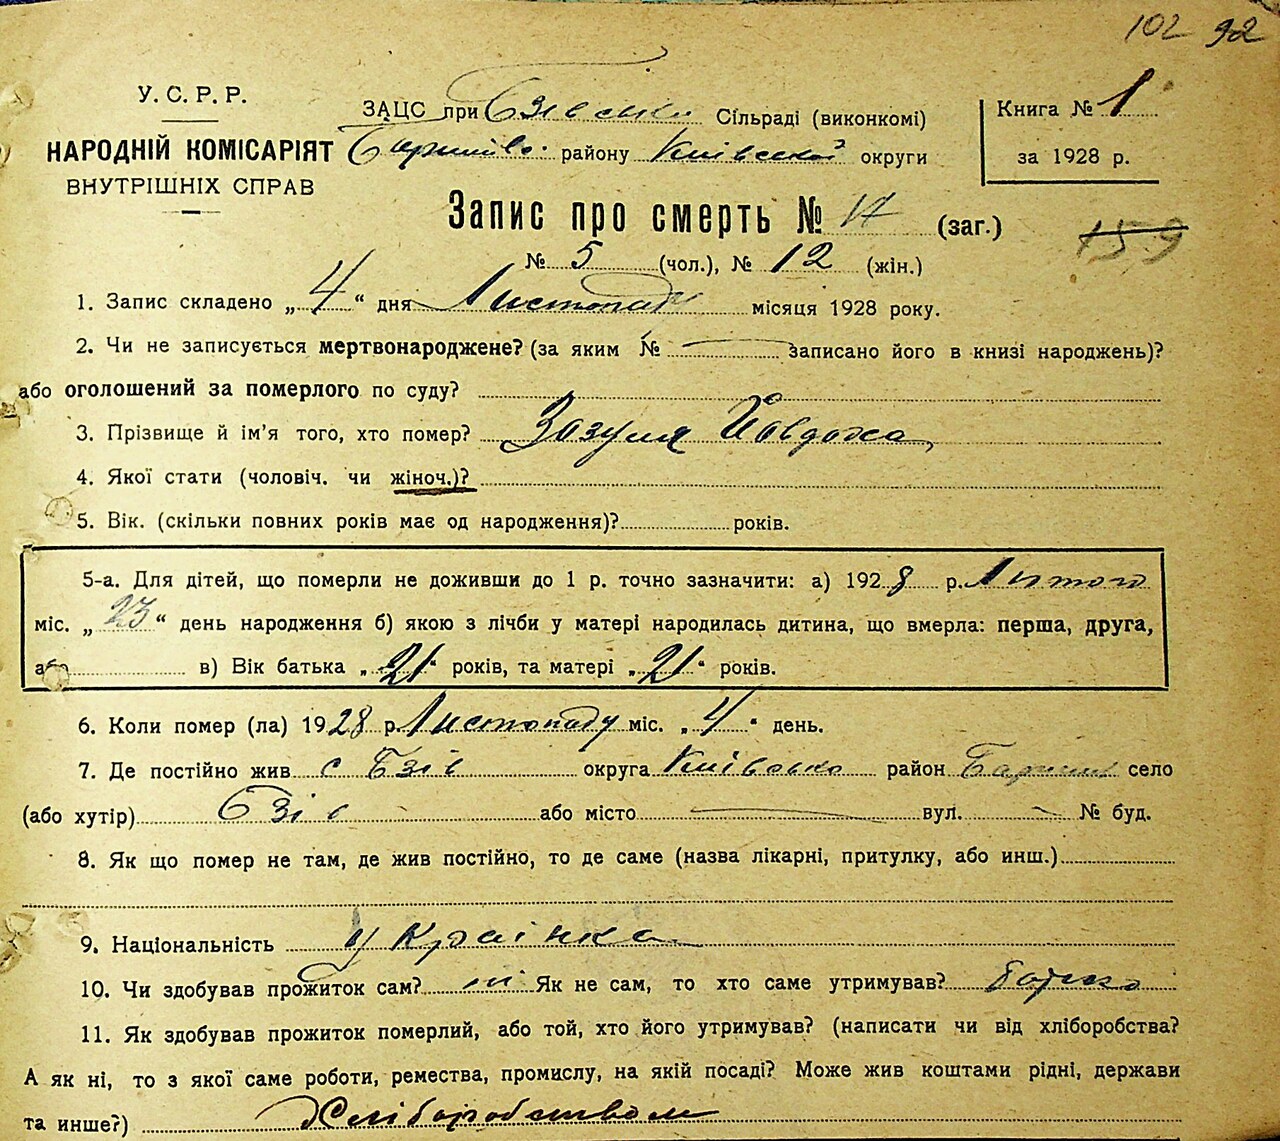 102 92
У. С. Р. Р.
НАРОДНІЙ КОМІСАРІЯТ
ВНУТРІШНІХ СПРАВ
ЗАЦС при Бзівські Сільраді (виконкомі)
району Київської округи
Книга № 1
за 1928 р.
Запис про смерть № (заг.)
159
№ 5 (чол.), № 12 (жін.)
1. Запис складено „ 4 “ дня Листопаду місяця 1928 року.
2. Чи не записується мертвонароджене? (за яким № записано його в книзі народжень)?
або оголошений за померлого по суду?
3. Прізвище й ім'я того, хто помер? Зозуля Йовдоха
4. Якої стати (чоловіч. чи жіноч.)?
5. Вік. (скільки повних років має од народження)? років.
5-а. Для дітей, що померли не доживши до 1 р. точно зазначити: а) 1928 р. Лютого
міс. „ 23 “ день народження б) якою з лічби у матері народилась дитина, що вмерла: перша, друга,
або в) Вік батька „ 21 “ років, та матері „ 21 “ років.
6. Коли помер (ла) 1928 р. Листопаду міс. „ 4 “ день.
7. Де постійно жив с Бзів округа Київсько район Бариш село
(або хутір) Бзів або місто вул. № буд.
8. Як що помер не там, де жив постійно, то де саме (назва лікарні, притулку, або инш.)
9. Національність Українка
10. Чи здобував прожиток сам? ні Як не сам, то хто саме утримував? батько
11. Як здобував прожиток померлий, або той, хто його утримував? (написати чи від хліборобства?
А як ні, то з якої саме роботи, ремества, промислу, на якій посаді? Може жив коштами рідні, держави
та инше?) Хліборобством